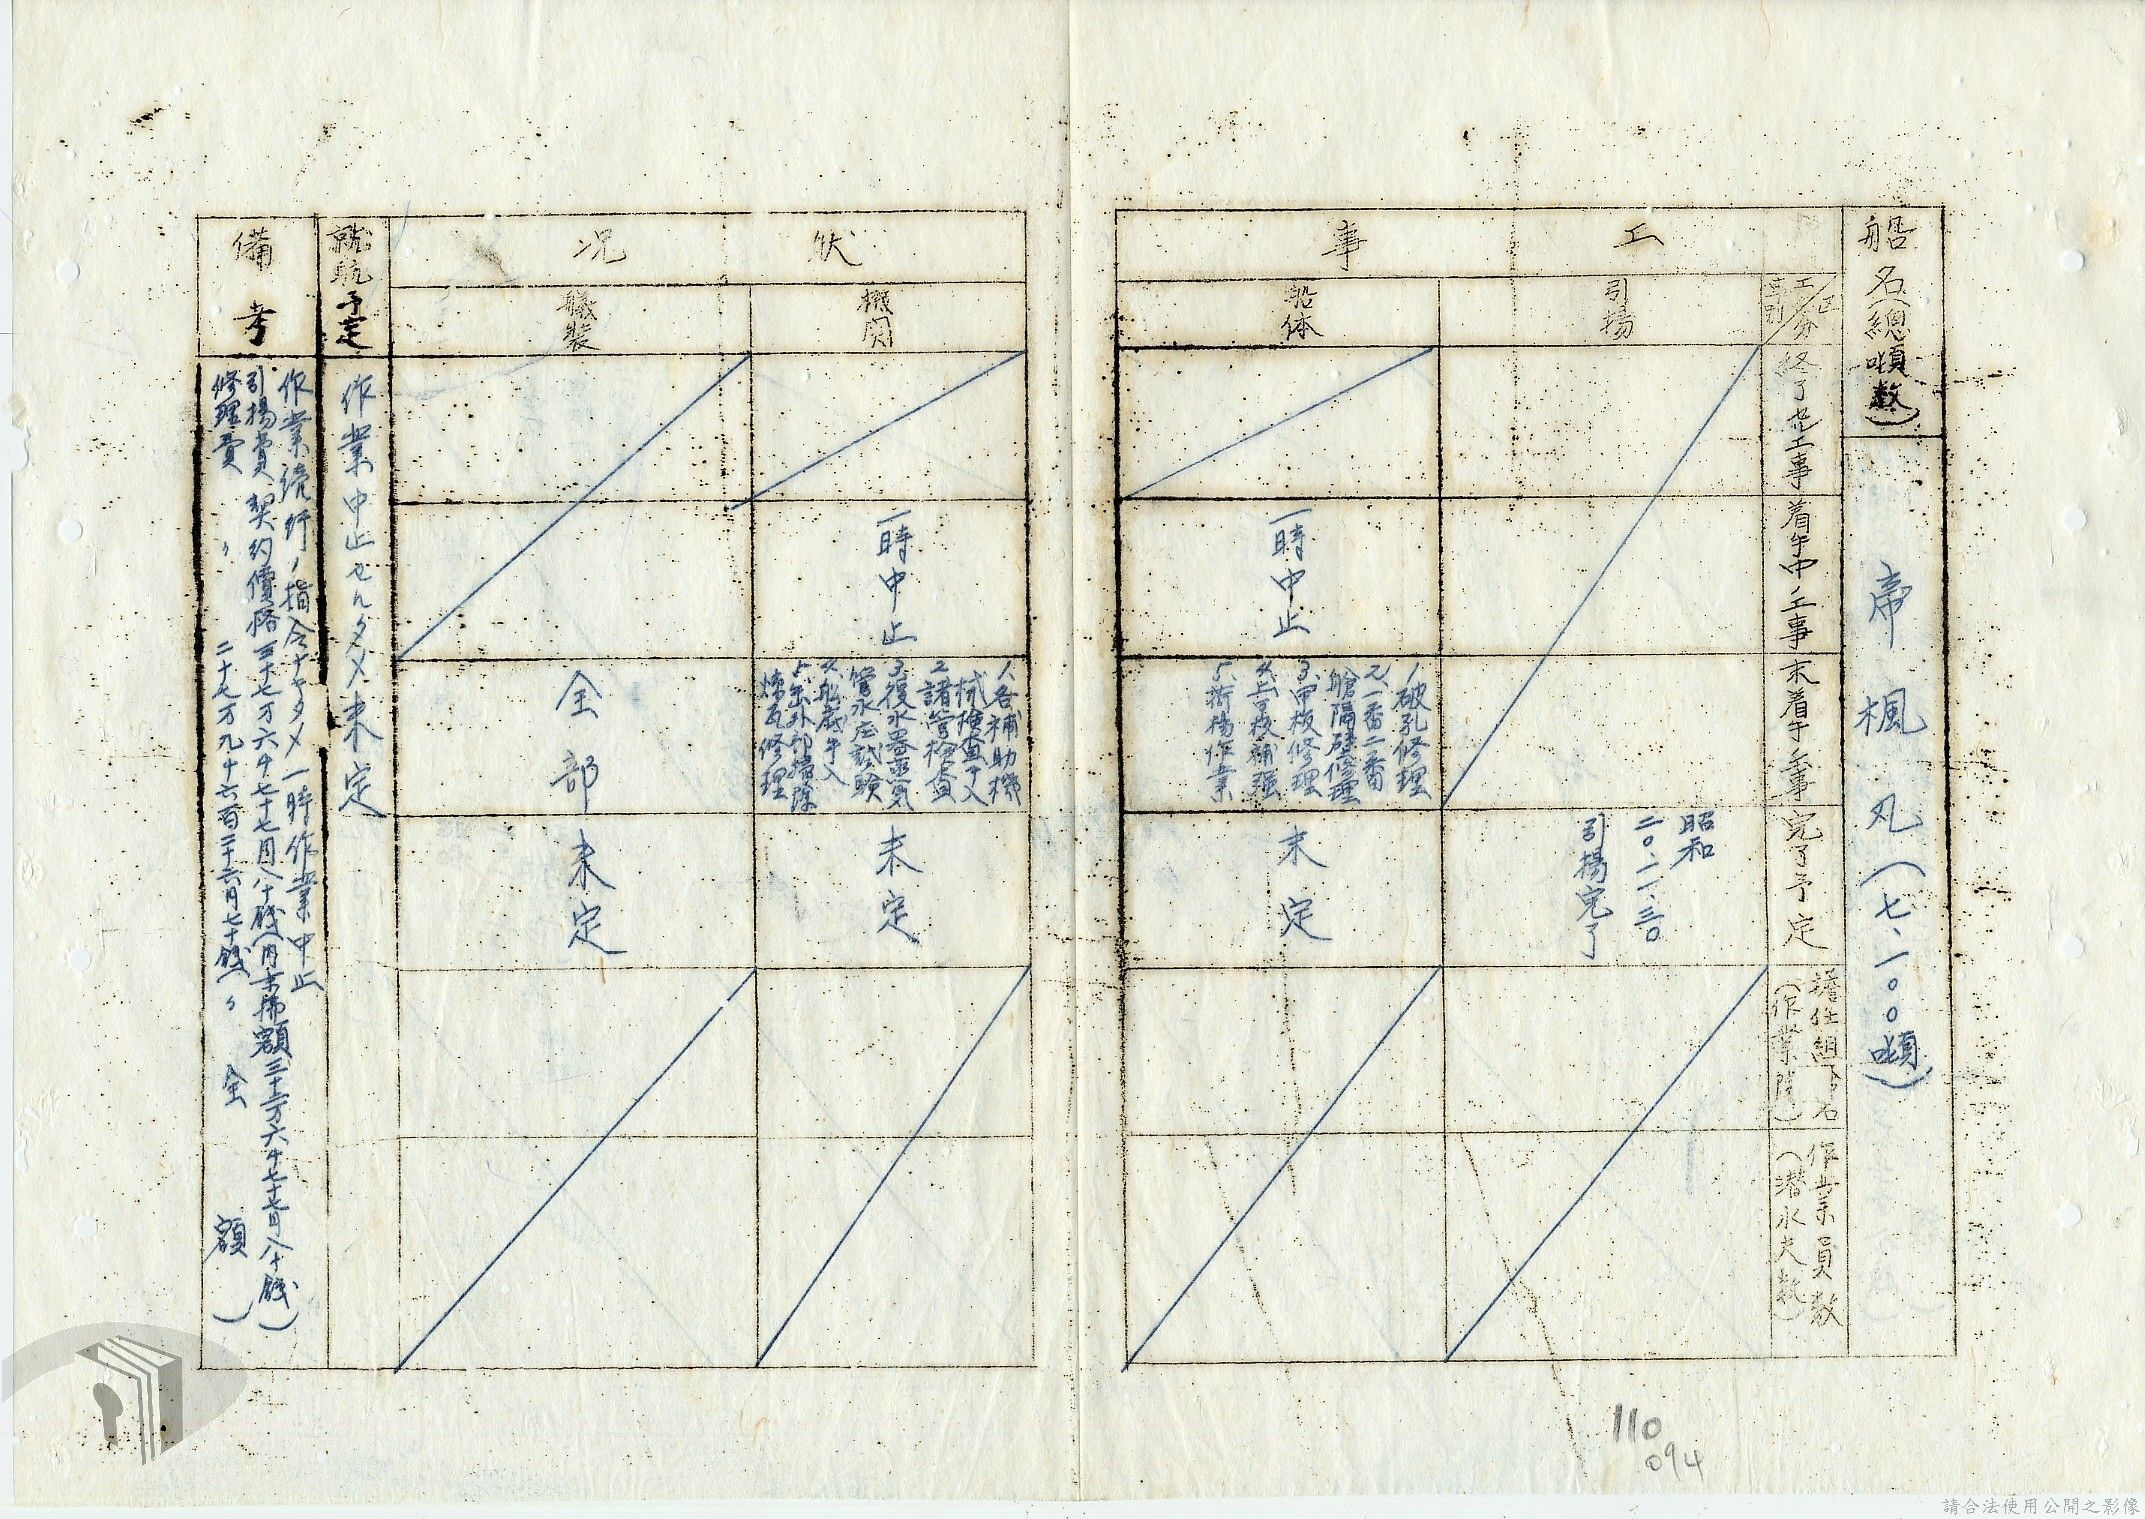 船名(總噸数)
帝楓丸(七、一〇〇噸)
工事
状況
工事別
区分
終了セル工事
着手中ノ工事
未着手工事
完了予定
擔任組合名
(作業隊)
作業員数
(潜水夫数)
引揚
昭和
二〇・一一・三〇
引揚完了
船体
一時中止
1、破孔修理
2、一番二番
艙隔壁修理
3、甲板修理
4、上甲板補強
5、荷揚作業
未定
機関
一時中止
1、各補助機
械検査手入
2、諸管検査
3、復水器蒸気
管水圧試験
4、船底弁手入
5、缶外部掃除
煉瓦修理
未定
艤装
全部
未定
就航予定
作業中止セルタメ未定
備考
作業続行ノ指令ナキタメ一時作業中止
引揚費 契約價格 三十七万六千七十七円八十銭(内未拂額三十三万六千七十七円八十銭)
修理費 〃 〃 二十七万九千六百二十六円七十銭(〃 全額)
110
094
請合法使用公開之影像